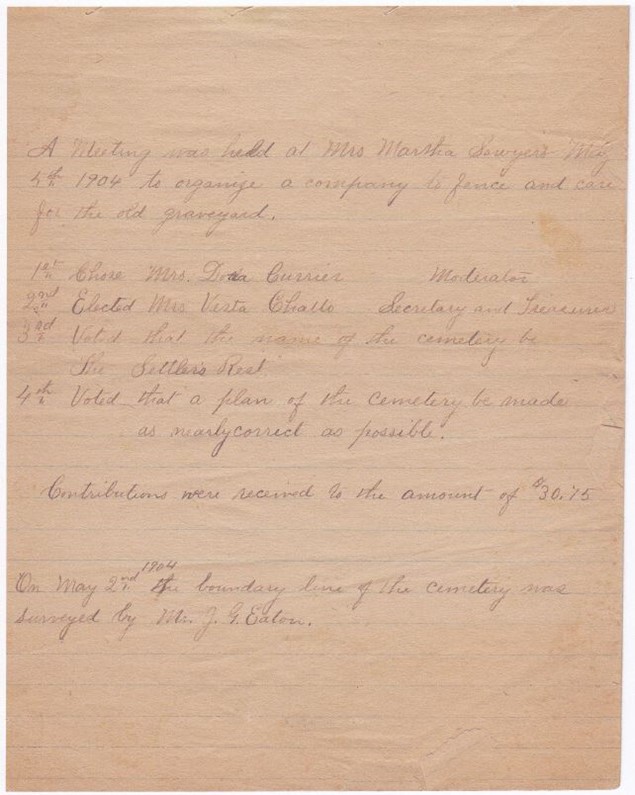 A Meeting was held at Mrs Martha Sawyers May
5th 1904 to organize a company to fence and care
for the old graveyard.
1st Chose Mrs. Dora Currier Moderator
2nd Elected Mrs Vesta Secretary and Treasurer
3rd Voted that the name of the cemetery be
"The Settlers Rest"
4th Voted that a plan of the cemetery be made
as nearly correct as possible.
Contributions were received to the amount of $30.75
1904
On May 2nd the boundary line of the cemetery was
surveyed by Mr. J. G. Eaton.